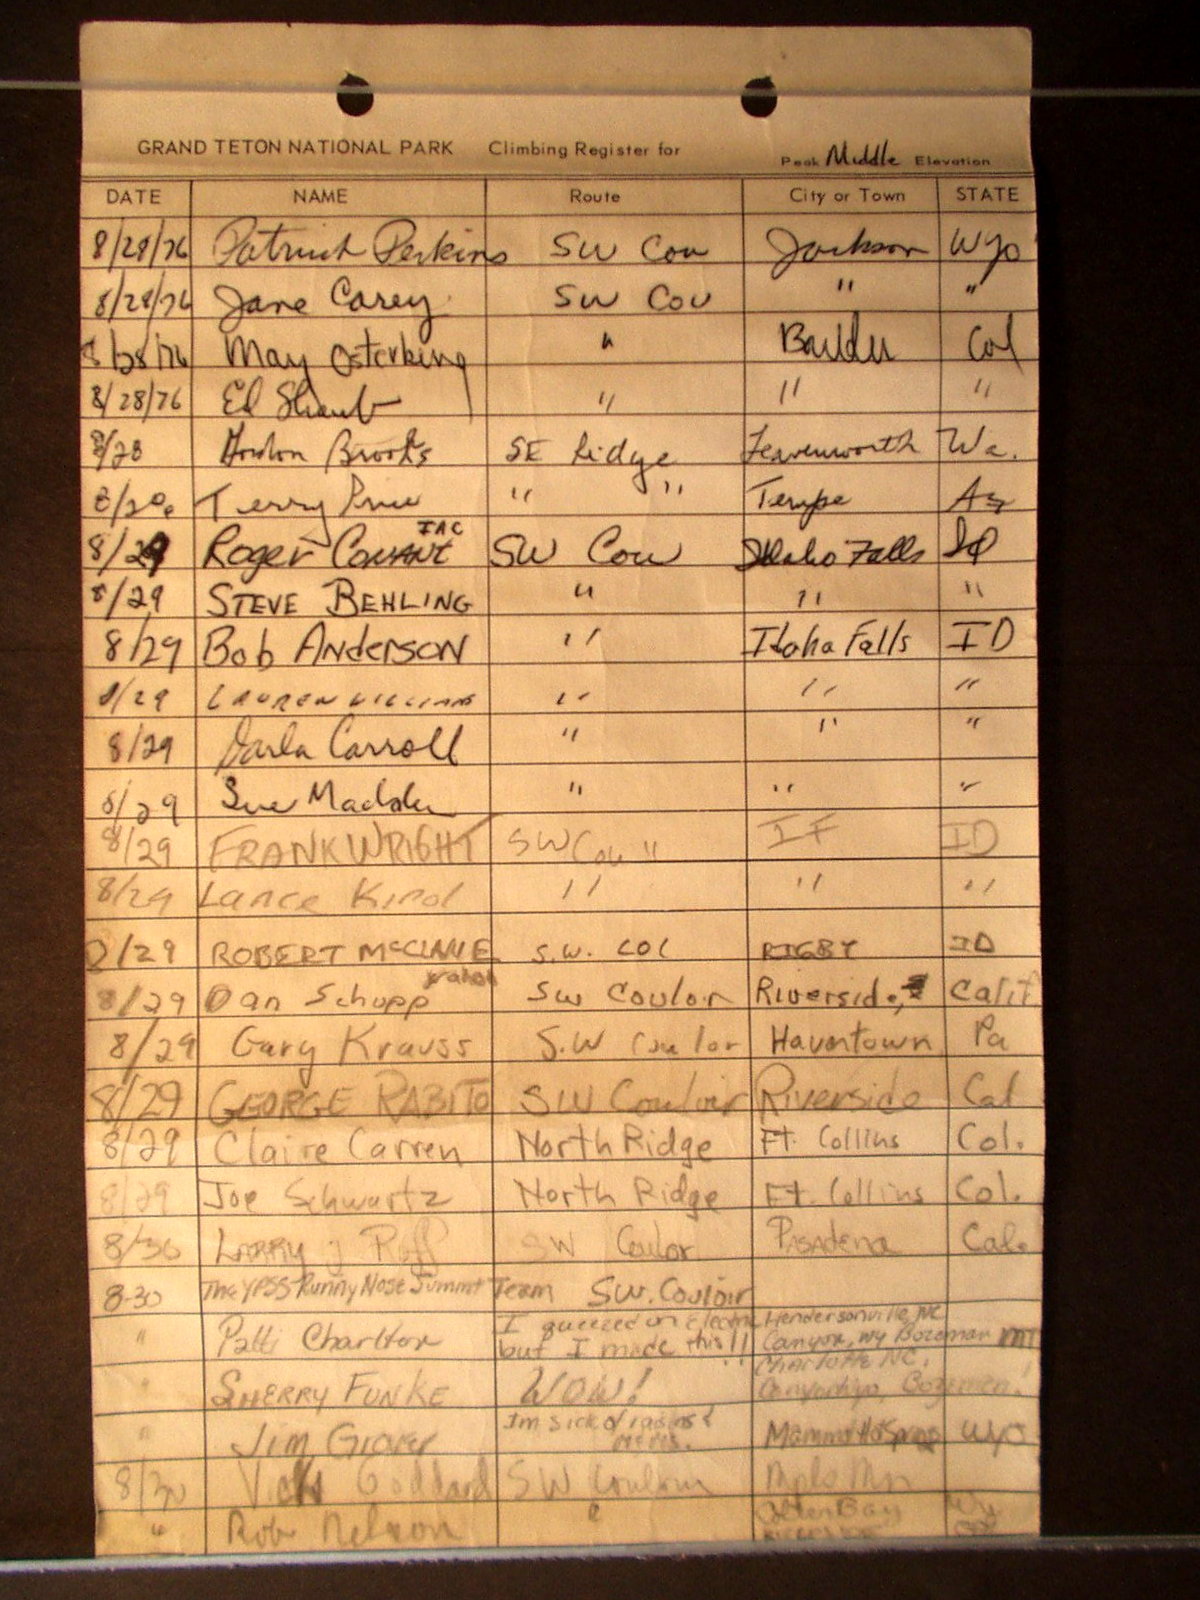 GRAND TETON NATIONAL PARK Climbing Register for Peak Middle Elevation
DATE NAME Route City or Town STATE
8/28/76 Patrick Perkins SW Cou Jackson Wyo
8/28/76 Jane Carey SW Cou " "
8/28/76 May Osterking " Boulder Col
8/28/76 Ed Straub " " "
8/28 Brooks SE Ridge Leavenworth Wa.
8/28 Terry Price " " Tempe Az
8/29 Roger Conant IAC SW Cou Idaho Falls Id
8/29 STEVE BEHLING " " "
8/29 Bob ANDERSON " Idaho Falls ID
8/29 LAUREN WILLIAMS " " "
8/29 Darla Carroll " " "
8/29 Sue Madden " " "
8/29 FRANK WRIGHT SW Cou " IF ID
8/29 Lance Kirol " " "
8/29 ROBERT McCLANE S.W. COL RIGBY ID
8/29 Dan Schupp SW Couloir Riverside, Calif
8/29 Gary Krauss S.W Coulor Havertown Pa
8/29 GEORGE RABITO SW Couloir Riverside Cal
8/29 Claire Carren North Ridge Ft. Collins Col.
8/29 Joe Schwartz North Ridge Ft. Collins Col.
8/30 Larry J Ruff SW Coulor Pasadena Cal.
8-30 The YPSS Runny Nose Summit Team SW. Couloir
" Patti Charlton I queezed on electric but I made this!! Hendersonville, NC Canyon, Wy Bozeman MT
" SHERRY FUNKE WOW! Charlotte NC. Bozeman!
" Jim Grover Im sick of raisins & M&Ms. Mammoth Hot Springs Wyo
8/30 Vicki Goddard SW Couloir Mpls Mn
" Rob Nelson " Colter Bay Wy